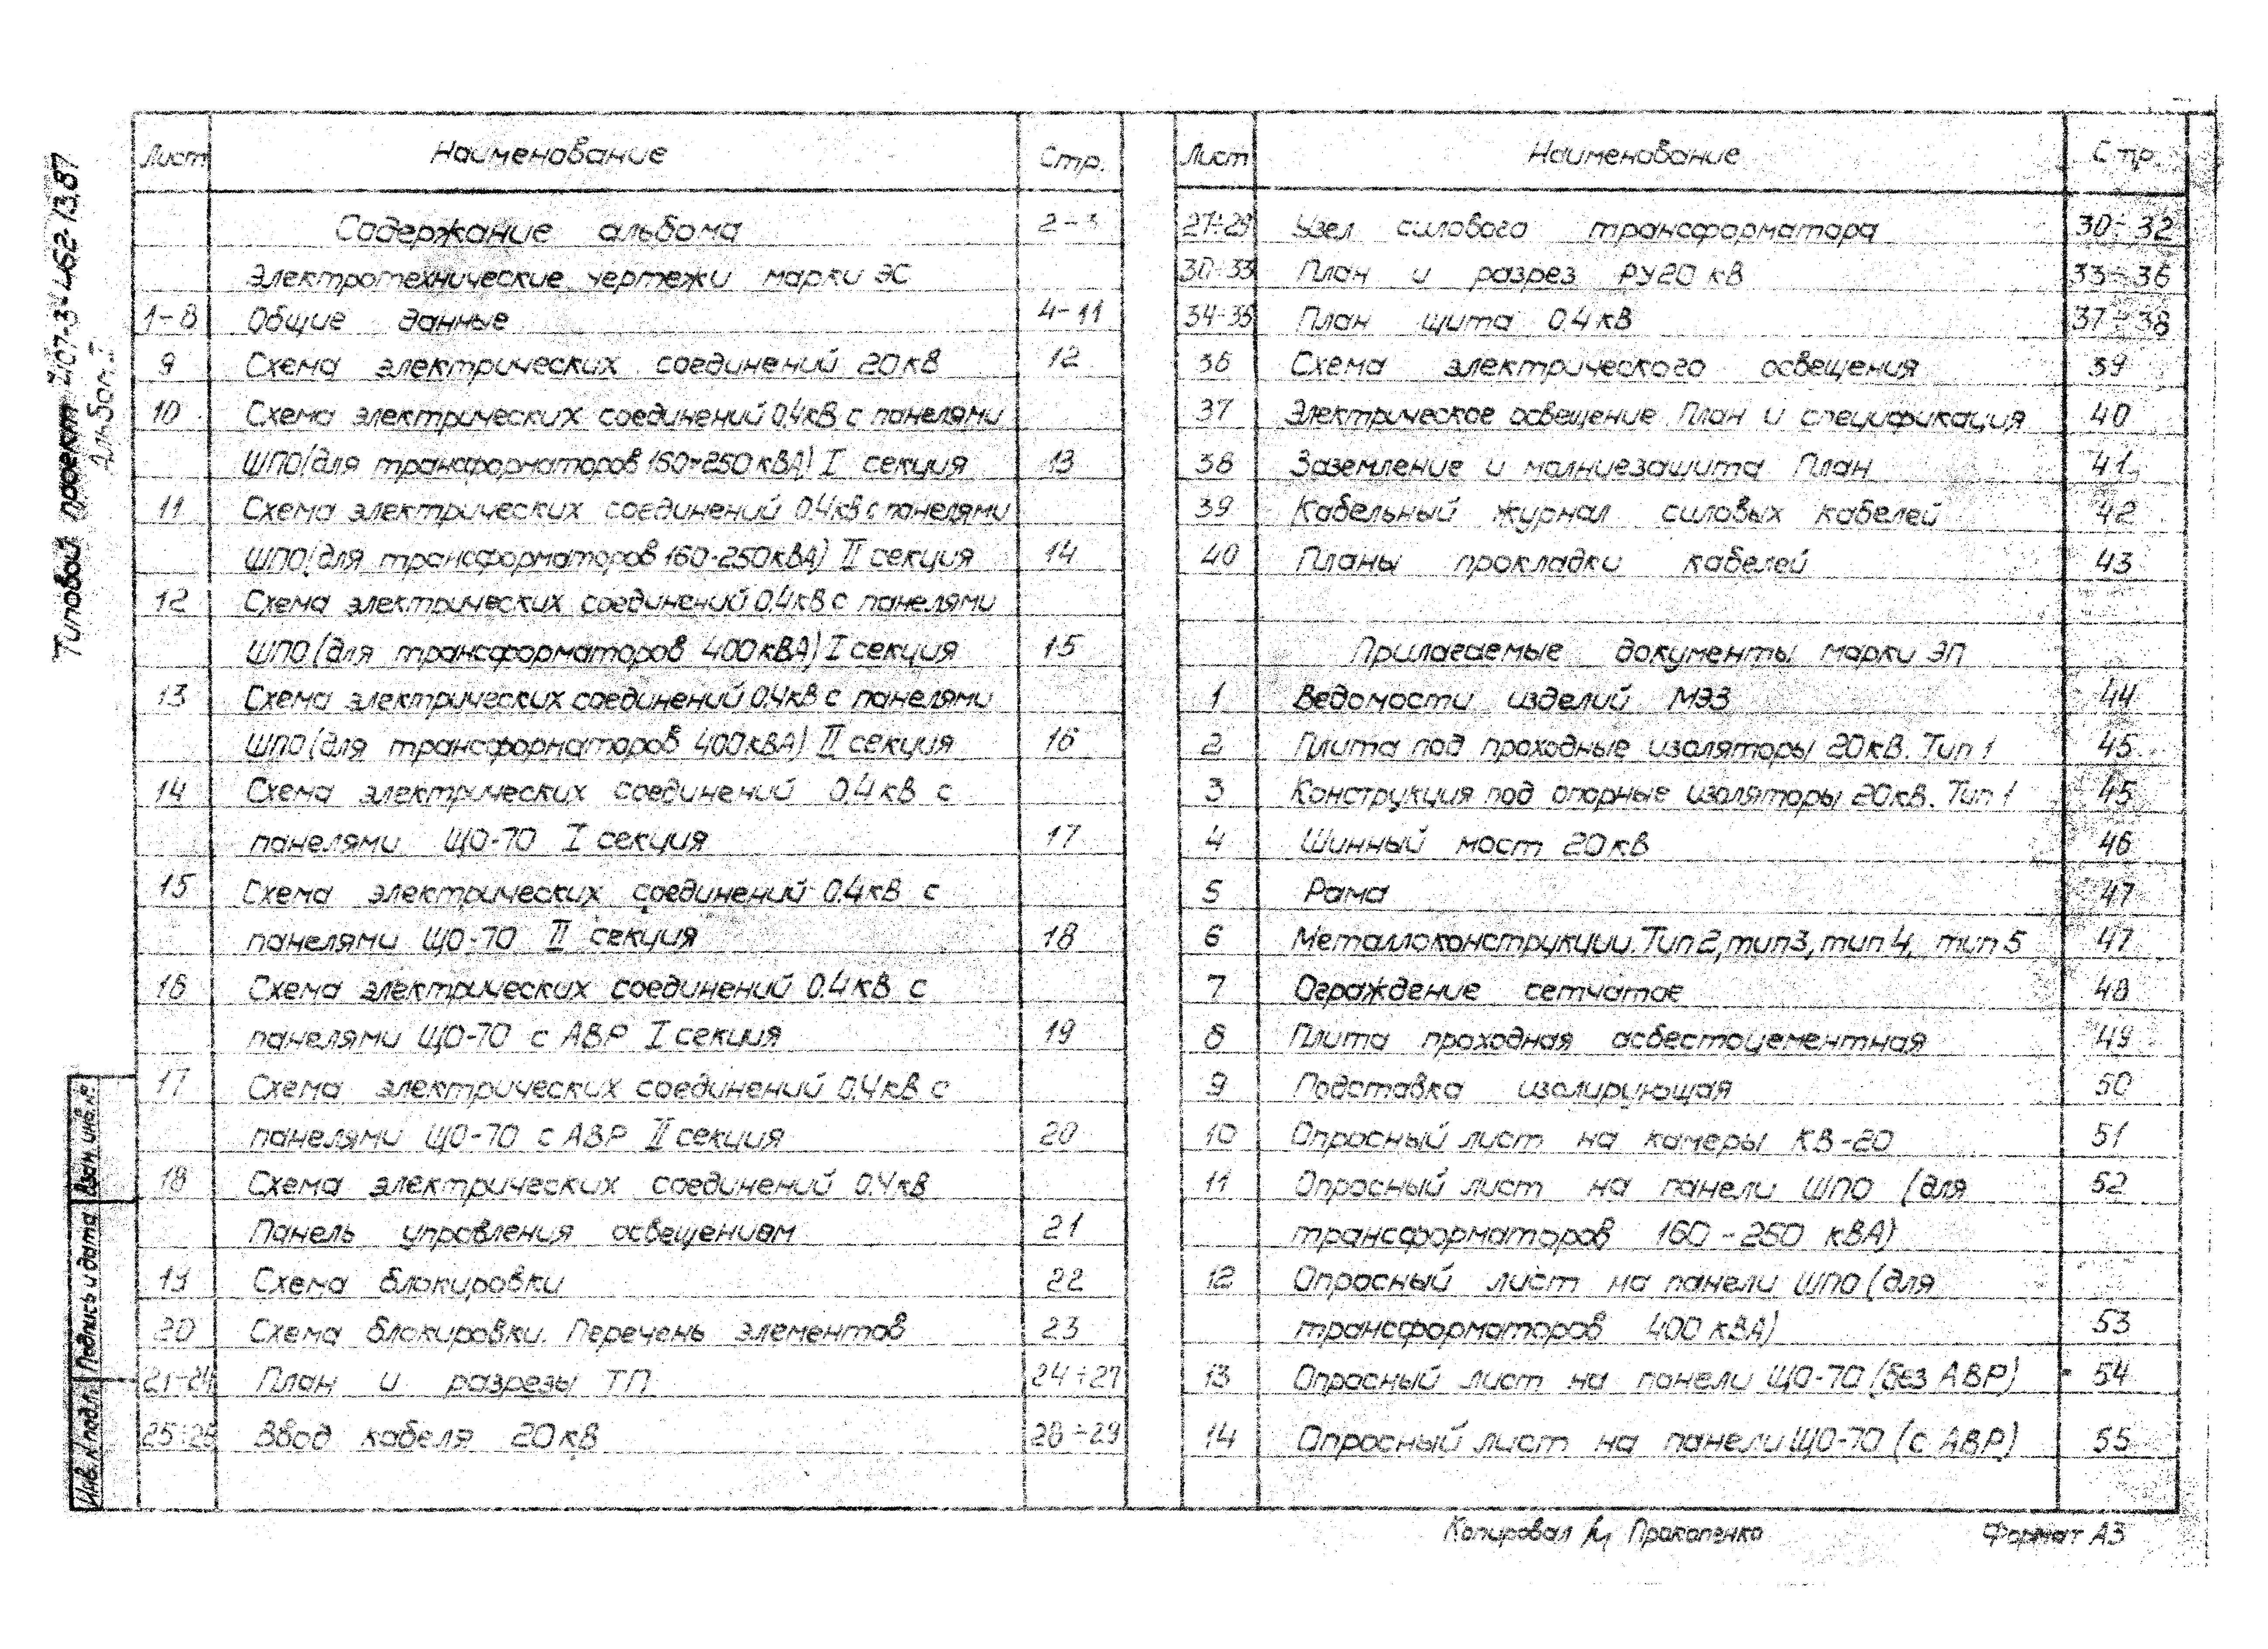 Типовой проект 407-3-462.13.87
Альбом I
Лист Наименование Стр.
Содержание альбома 2-3
Электротехнические чертежи марки ЭС
1-8 Общие данные 4-11
9 Схема электрических соединений 20кВ 12
10 Схема электрических соединений 0,4кВ с панелями
ШПО(для трансформаторов 160-250кВА) I секция 13
11 Схема электрических соединений 0.4кВ с панелями
ШПО(для трансформаторов 160-250кВА) II секция 14
12 Схема электрических соединений 0.4кВ с панелями
ШПО(для трансформаторов 400кВА) I секция 15
13 Схема электрических соединений 0.4кВ с панелями
ШПО(для трансформаторов 400кВА) II секция 16
14 Схема электрических соединений 0.4кВ с
панелями ЩО-70 I секция 17
15 Схема электрических соединений 0.4кВ с
панелями ЩО-70 II секция 18
16 Схема электрических соединений 0.4кВ с
панелями ЩО-70 с АВР I секция 19
17 Схема электрических соединений 0.4кВ с
панелями ЩО-70 с АВР II секция 20
18 Схема электрических соединений 0.4кВ
Панель управления освещением 21
19 Схема блокировки 22
20 Схема блокировки. Перечень элементов 23
21-24 План и разрезы ТП 24÷27
25÷26 Ввод кабеля 20кВ 28÷29
Лист Наименование Стр.
27÷29 Узел силового трансформатора 30÷32
30÷33 План и разрез РУ20 кВ 33÷36
34-35 План щита 0.4кВ 37-38
36 Схема электрического освещения 39
37 Электрическое освещение. План и спецификация 40
38 Заземление и молниезащита План 41
39 Кабельный журнал силовых кабелей 42
40 Планы прокладки кабелей 43
Прилагаемые документы марки ЭП
1 Ведомости изделий МЭЗ 44
2 Плита под проходные изоляторы 20кВ. Тип 1 45
3 Конструкция под опорные изоляторы 20кВ. Тип 1 45
4 Шинный мост 20кВ 46
5 Рама 47
6 Металлоконструкции. Тип 2, тип 3, тип 4, тип 5 47
7 Ограждение сетчатое 48
8 Плита проходная асбестоцементная 49
9 Подставка изолирующая 50
10 Опросный лист на камеры КВ-20 51
11 Опросный лист на панели ШПО (для 52
трансформаторов 160-250 кВА)
12 Опросный лист на панели ШПО (для
трансформаторов 400 кВА) 53
13 Опросный лист на панели ЩО-70 (без АВР) 54
14 Опросный лист на панели ЩО-70 (с АВР) 55
Взам. инв. №
Подпись и дата
Инв. N подл.
Копировал Прокопенко Формат А3